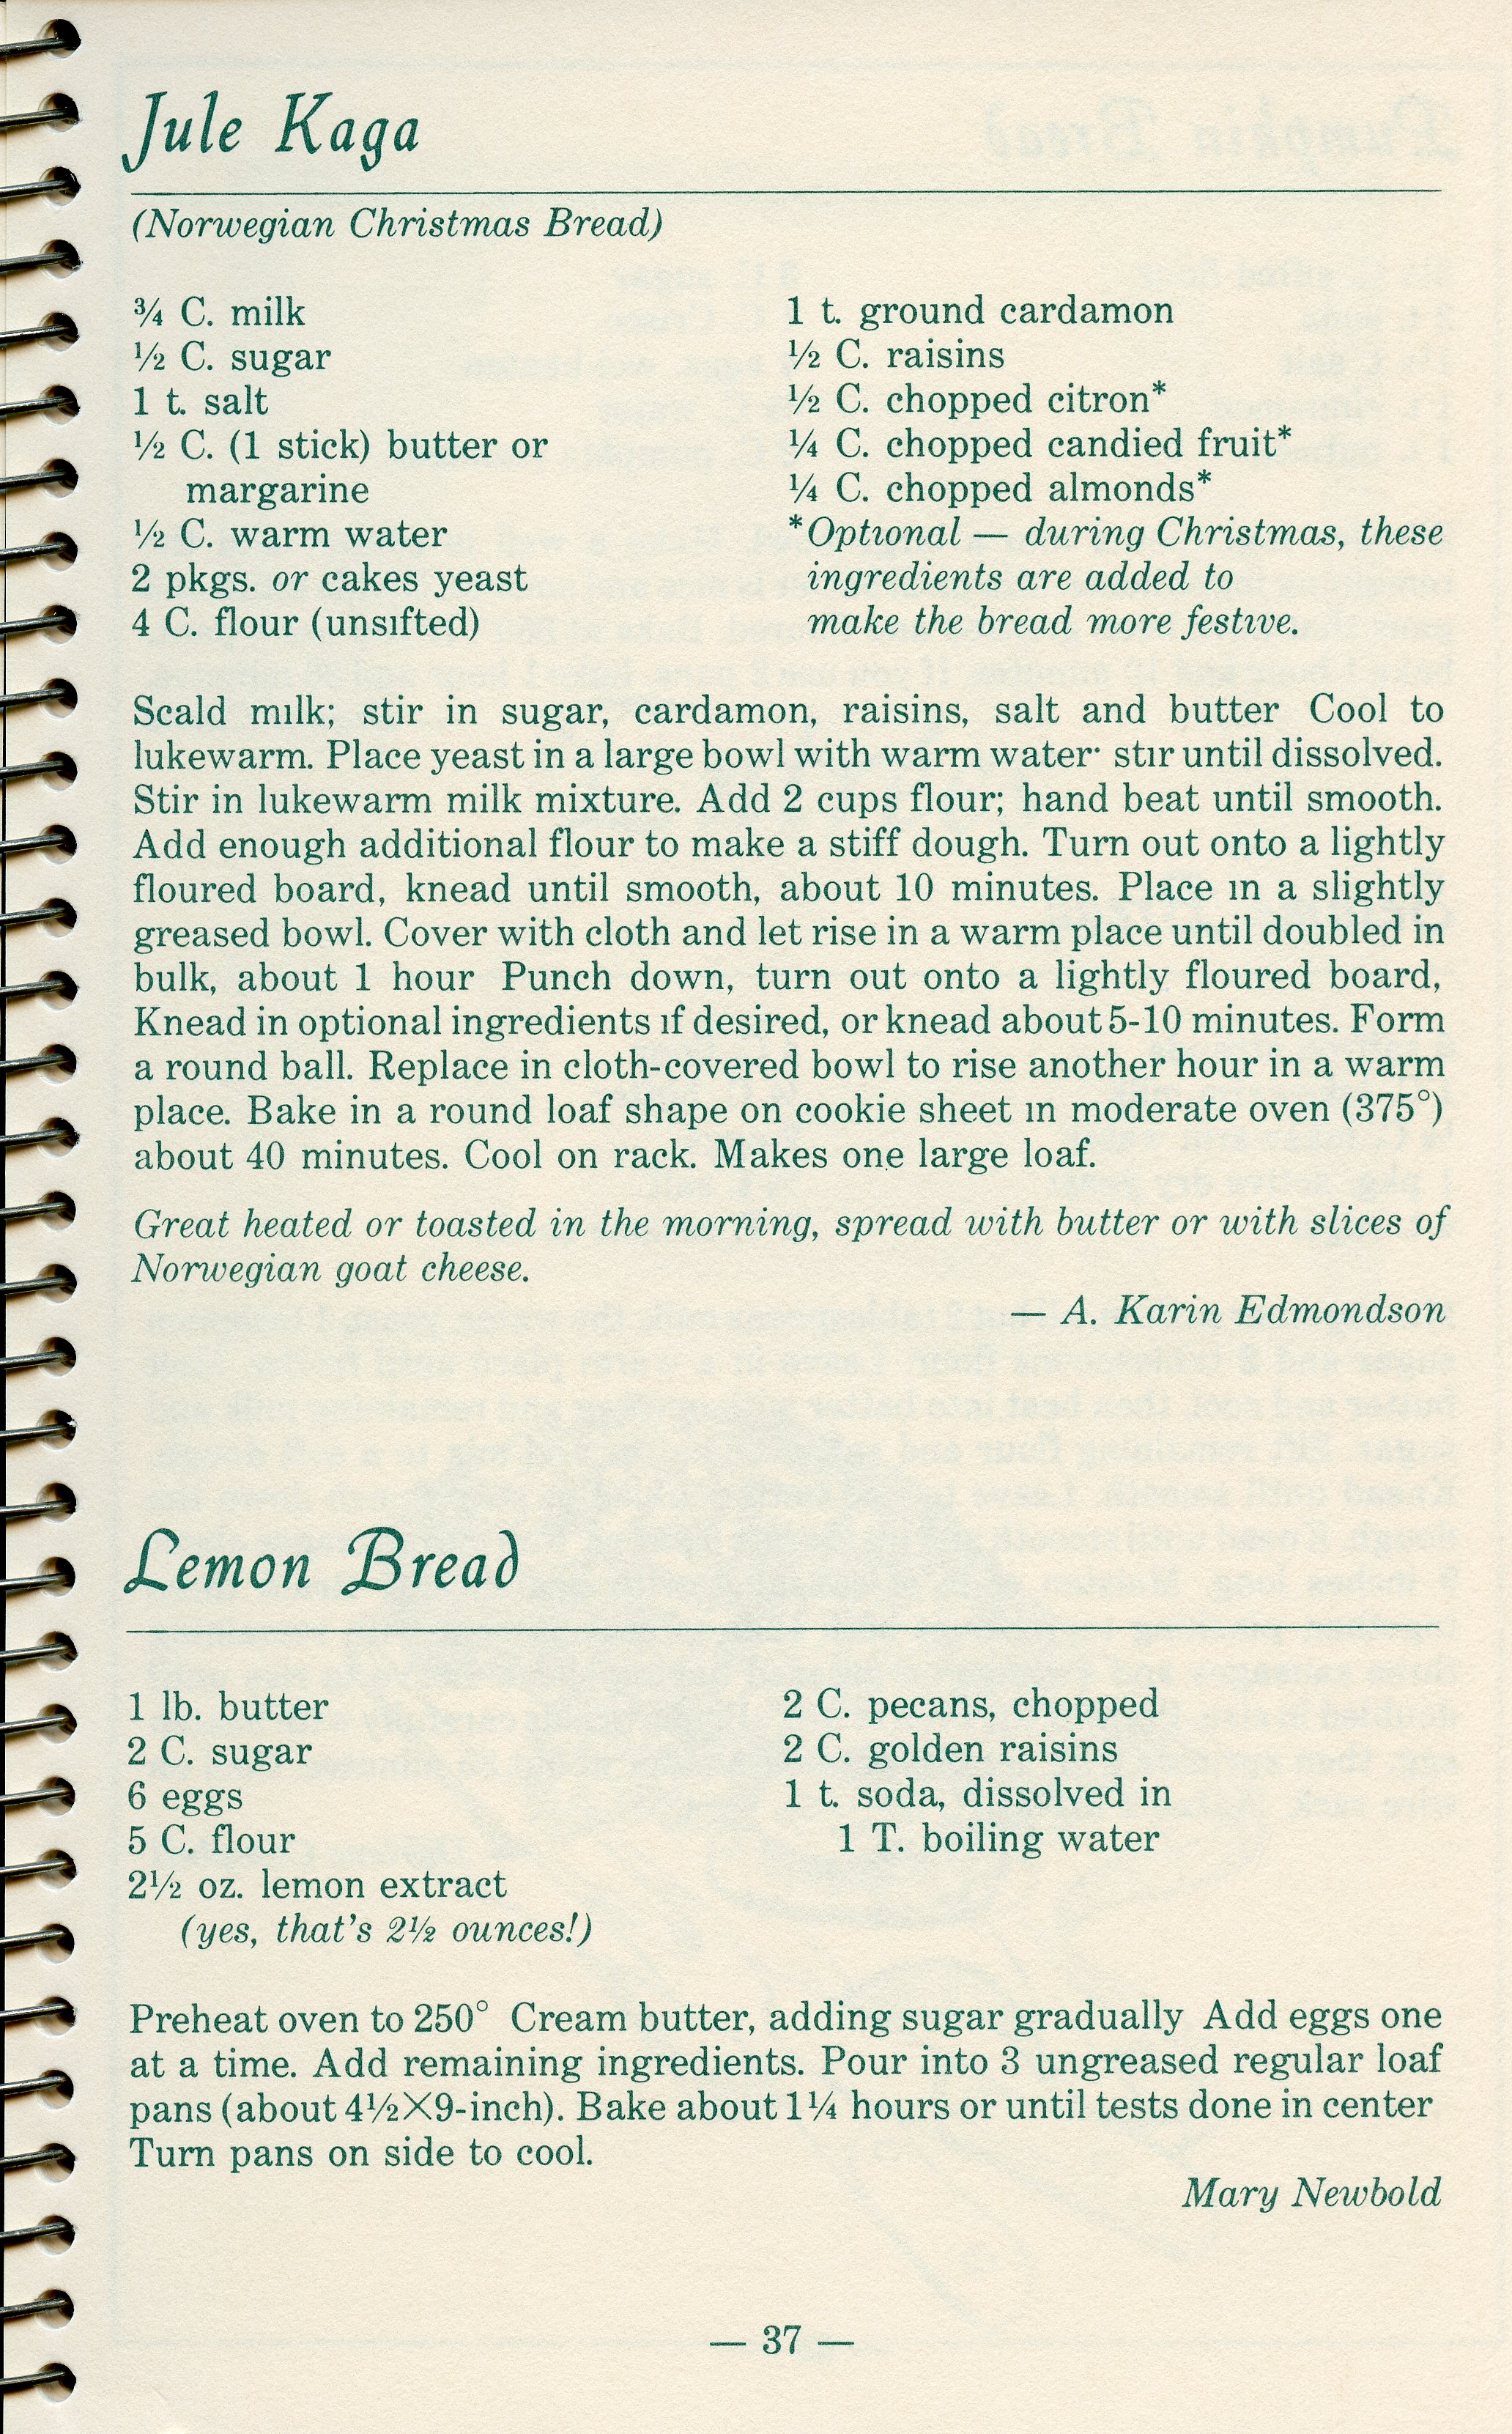 Jule Kaga
(Norwegian Christmas Bread)
¾ C. milk
½ C. sugar
1 t. salt
½ C. (1 stick) butter or
margarine
½ C. warm water
2 pkgs. or cakes yeast
4 C. flour (unsifted)
1 t. ground cardamon
½ C. raisins
½ C. chopped citron*
¼ C. chopped candied fruit*
¼ C. chopped almonds*
*Optional — during Christmas, these
ingredients are added to
make the bread more festive.
Scald milk; stir in sugar, cardamon, raisins, salt and butter Cool to
lukewarm. Place yeast in a large bowl with warm water· stir until dissolved.
Stir in lukewarm milk mixture. Add 2 cups flour; hand beat until smooth.
Add enough additional flour to make a stiff dough. Turn out onto a lightly
floured board, knead until smooth, about 10 minutes. Place in a slightly
greased bowl. Cover with cloth and let rise in a warm place until doubled in
bulk, about 1 hour Punch down, turn out onto a lightly floured board,
Knead in optional ingredients if desired, or knead about 5-10 minutes. Form
a round ball. Replace in cloth-covered bowl to rise another hour in a warm
place. Bake in a round loaf shape on cookie sheet in moderate oven (375°)
about 40 minutes. Cool on rack. Makes one large loaf.
Great heated or toasted in the morning, spread with butter or with slices of
Norwegian goat cheese.
— A. Karin Edmondson
Lemon Bread
1 lb. butter
2 C. sugar
6 eggs
5 C. flour
2½ oz. lemon extract
(yes, that's 2½ ounces!)
2 C. pecans, chopped
2 C. golden raisins
1 t. soda, dissolved in
1 T. boiling water
Preheat oven to 250° Cream butter, adding sugar gradually Add eggs one
at a time. Add remaining ingredients. Pour into 3 ungreased regular loaf
pans (about 4½×9-inch). Bake about 1¼ hours or until tests done in center
Turn pans on side to cool.
Mary Newbold
— 37 —